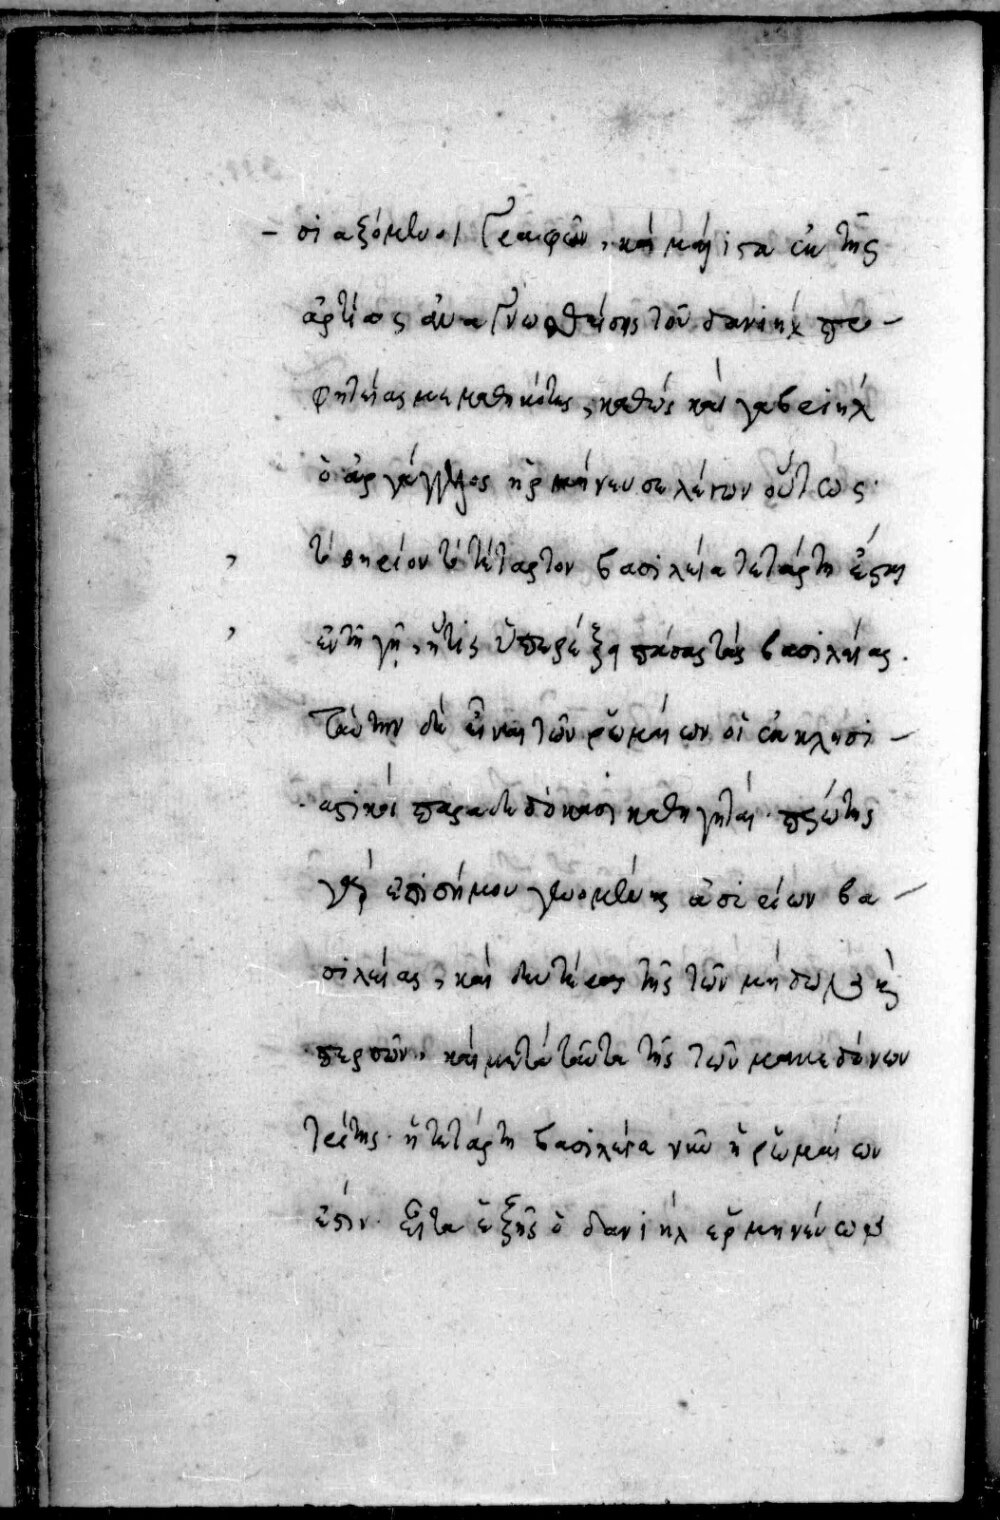 – σιαζόμενοι γραφῶν, καὶ μάλιστα ἐκ τῆς
ἀρτίως ἀναγνωσθείσης τοῦ δανιὴλ προ –
φητείας μεμαθηκότες, καθὼς καὶ γαβριὴλ
ὁ ἀρχάγγελος ἡρμήνευσε λέγων οὕτως·
τὸ θηρίον τὸ τέταρτον βασιλεία τετάρτη ἔσται
ἐν τῇ γῇ, ἥτις ὑπερέξει πάσας τὰς βασιλείας.
ταύτην δὲ εἶναι τῶν ῥωμαίων οἱ ἐκκλησι –
αστικοὶ παραδεδώκασι καθηγηταί· πρώτης
γὰρ ἐπισήμου γενομένης ἀσσυρίων βα –
σιλείας, καὶ δευτέρας τῆς τῶν μήδων καὶ
περσῶν, καὶ μετὰ ταῦτα τῆς τῶν μακεδόνων
τρίτης· ἡ τετάρτη βασιλεία νῦν ἡ ῥωμαίων
ἐστίν· εἶτα ἑξῆς ὁ δανιὴλ ἑρμηνεύων